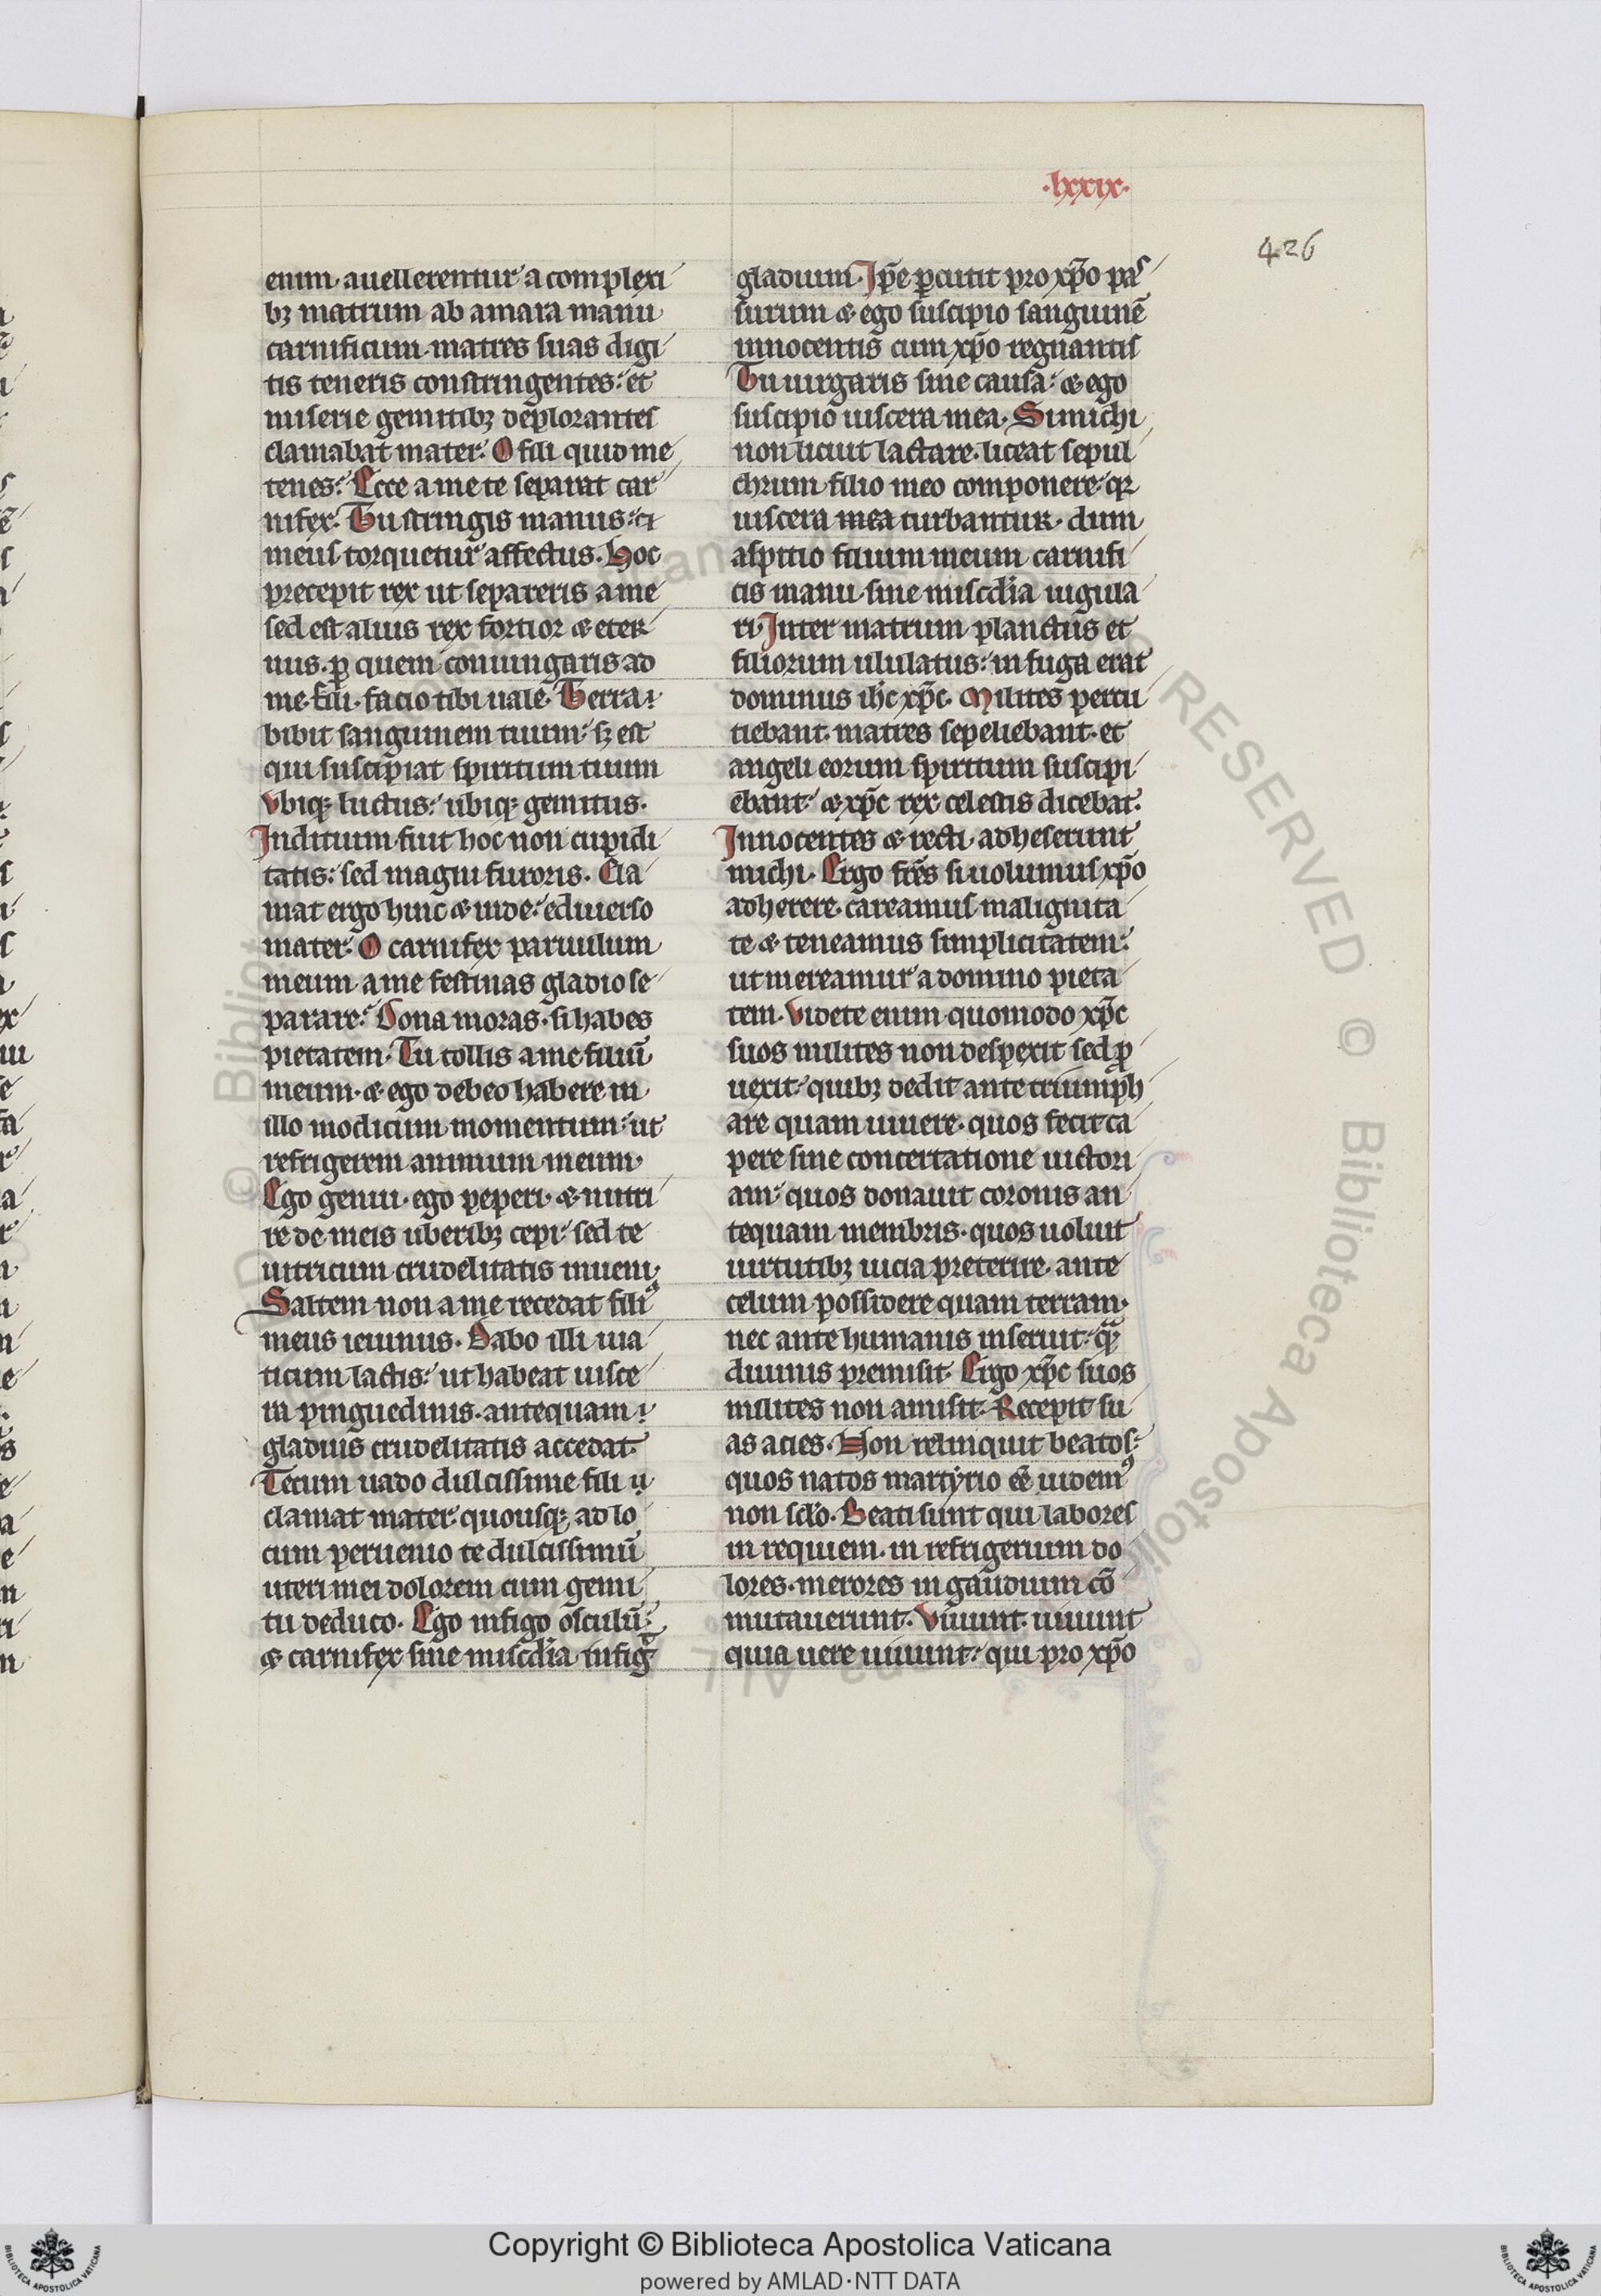 ·lxxix·
426
enim· auellerentur a complexi
bꝫ matrum ab amara manu
carnificum· matres suas digi
tis teneris constringentes: et
miserie gemitibꝫ deplorantes
clamabat mater. O fili quid me
tenes: Ecce a me te separat car
nifex. Tu stringis manus: et
meus torquetur affectus. Hoc
precepit rex ut separeris a me
sed est alius rex fortior & eter
nus. ꝑ quem coniungaris ad
me. fili· facio tibi uale. Terra
bibit sanguinem tuum: sꝫ est
qui suscipiat spiritum tuum
Vbiqꝫ luctus: ubiqꝫ gemitus.
Inditium fuit hoc non cupidi
tatis: sed magni furoris. Cla
mat ergo hinc & inde: ediuerso
mater. O carnifex paruulum
meum a me festinas gladio se
parare: Dona moras· si habes
pietatem. Tu tollis a me filiū
meum· & ego debeo habere in
illo modicum momentum: ut
refrigerem animum meum·
Ego genui· ego peperi· & nutri
re de meis uberibꝫ cepi: sed te
uitricum crudelitatis inueni.
Saltem non a me recedat filiꝰ
meus ieiunus. Dabo illi uia
ticum lactis: ut habeat uisce
ra pinguedinis· antequam
gladius crudelitatis accedat.
Tecum uado dulcissime fili
clamat mater. quousqꝫ ad lo
cum peruenio te dulcissimū
uteri mei dolorem cum gemi
tu deduco. Ego infigo osculū:
& carnifex sine misc̄dia infig̃
gladium. Ip̄e ꝑcutit pro xp̄o pas
surum & ego suscipio sanguinē
innocentis cum xp̄o regnantis
Tu uirgaris sine causa: & ego
suscipio uiscera mea. Si michi
non licuit lactare· liceat sepul
chrum filio meo componere: qꝛ
uiscera mea turbantur· dum
aspitio filium meum carnifi
cis manu sine misc̄dia iugula
ri. Inter matrum planctus et
filiorum ululatus: in fuga erat
dominus ih̄c xp̄c. Milites percu
tiebant. matres sepeliebant· et
angeli eorum spiritum suscipi
ebant: & xp̄c rex celestis dicebat.
Innocentes & recti· adheserunt
michi. Ergo fr̄es si uolumus xp̄o
adherere· careamus malignita
te & teneamus simplicitatem:
ut mereamur a domino pieta
tem. Videte enim quomodo xp̄c
suos milites non despexit sed ꝓ
uexit: quibꝫ dedit ante triumph
are quam uiuere· quos fecit ca
pere sine concertatione uictori
am: quos donauit coronis an
tequam membris· quos uoluit
uirtutibꝫ uicia preterire· ante
celum possidere quam terram·
nec ante humanis inseruit: qᵃ̄
diuinis premisit. Ergo xp̄c suos
milites non amisit. Recepit su
as acies. Non relinquit beatos:
quos natos martyrio ee̅ uidemꝰ
non sc̄lo. Beati sunt qui labores
in requiem· in refrigerium do
lores· merores in gaudium cō
mutauerunt. Viuunt uiuunt
quia uere uiuunt: qui pro xp̄o
© Biblioteca Apostolica Vaticana
ALL RIGHTS RESERVED
Copyright © Biblioteca Apostolica Vaticana
powered by AMLAD·NTT DATA
BIBLIOTECA APOSTOLICA VATICANA
BIBLIOTECA APOSTOLICA VATICANA